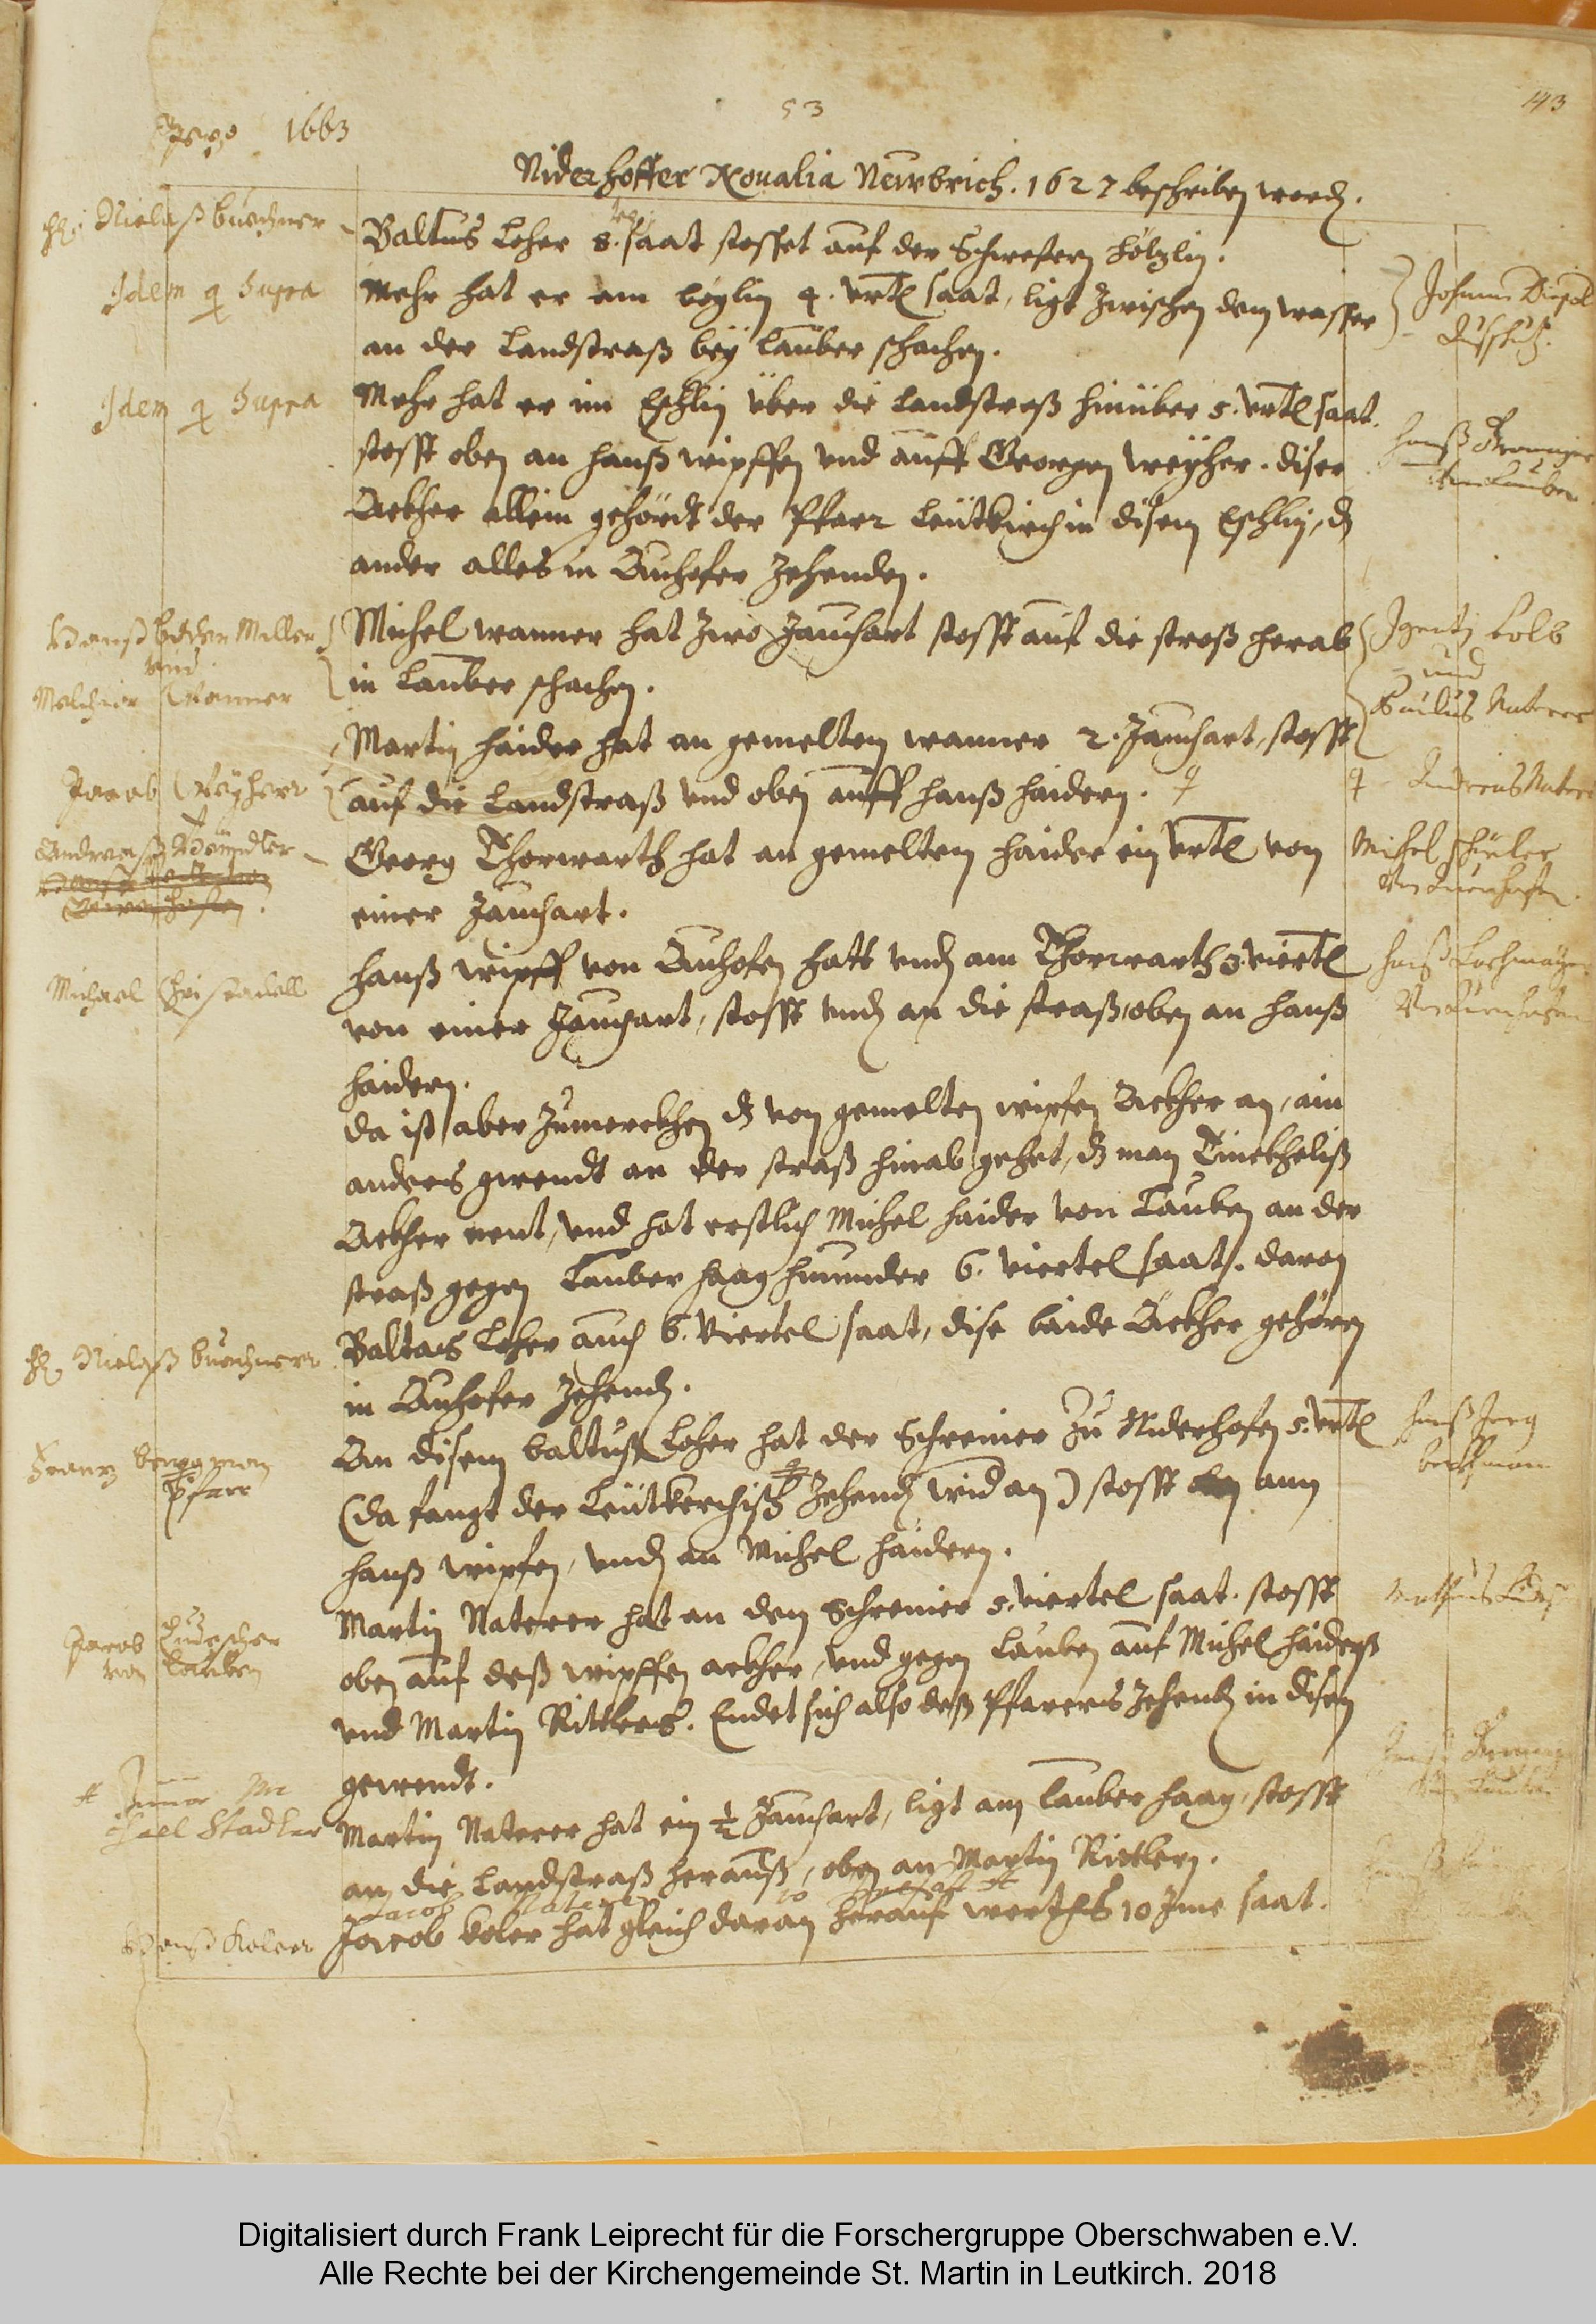 53
143
1663
Niderhoffer Noualia Neüwbrich. 1627 beschriben word.
Niclaß buechner
Baltus Loher 8. saat stosset auf der Schwestern höltzlin.
Idem q supra
Mehr hat er am böglin 4. vrtl saat, ligt zwischen dem wasser
Johann
an der Landstraß bey Lauber schachen.
Idem q supra
Mehr hat er im Eschlin über die Landstraß hinüber 5. vrtl saat.
stosst oben an hanß wipffen vnd auff Georgen weyher. diser
hanß
Ackher allein gehördt der Pfarr Leütkirch in disem Eschlin, dz
ander alles in Auhofer Zehenden.
Hanß Miller
vnd
Melchior Wanner
Michel wanner hat zwo Jauchart stosst auf die straß herab
in Lauber schachen.
Ignati Kolb
und
Paulus Naterer
Martin haider hat an gemelten wanner 2. Jauchart, stosst
Jacob Weyherr
auf die Landstraß vnd oben auff hanß haidern.
Andreas Naterer
Andreaß
Georg Thorwarth hat an gemelten haider ein vrtl von
Michel
einer Jauchart.
Michael
hanß wipff von Auhofen hatt vnd am Thorwarth 3 viertl
hanß Lochmayer
von einer Jauchart, stosst vnd an die straß, oben an hanß
haidern.
da ist aber zumerckhen dz von gemelten wipfen Ackher an, ain
anders gwendt an der straß hinab gehet, dz man Dinckhelis
Ackher nent, vnd hat erstlich Michel haider von Lauben an der
straß gegen Lauber haag hinunder 6. viertel saat. daran
Niclaß buechnerr
Baltas Loher auch 6. viertel saat, dise baide Ackher gehören
in Auhofer Zehend.
Frantz bergman
Pfarr
An disem baltuß Loher hat der Schreiner zu Niderhofen 5. vrtl
hanß Jerg
berkhman
(da fangt der Leütkirchisch Zehend wid an) stosst oben ann
hanß wipfen, vnd an Michel haidern.
Jacob
von Lauben
Martin Naterer hat an dem Schreiner 5. viertel saat. stosst
oben auf deß wipffen ackher, vnd gegen Lauben auf Michel haiders
vnd Martin Rittlers. Endet sich also deß Pfarrers Zehend in disem
gewendt.
Michael Stadler
Martin Naterer hat ein ½ Jauchart, ligt am Lauber haag, stosst
an die Landstraß herauß, oben an Martin Rittlern.
Jacob
Hanß Koler
Jacob Koler hat gleich daran herauf werths 10 Ime saat.
Digitalisiert durch Frank Leiprecht für die Forschergruppe Oberschwaben e.V.
Alle Rechte bei der Kirchengemeinde St. Martin in Leutkirch. 2018